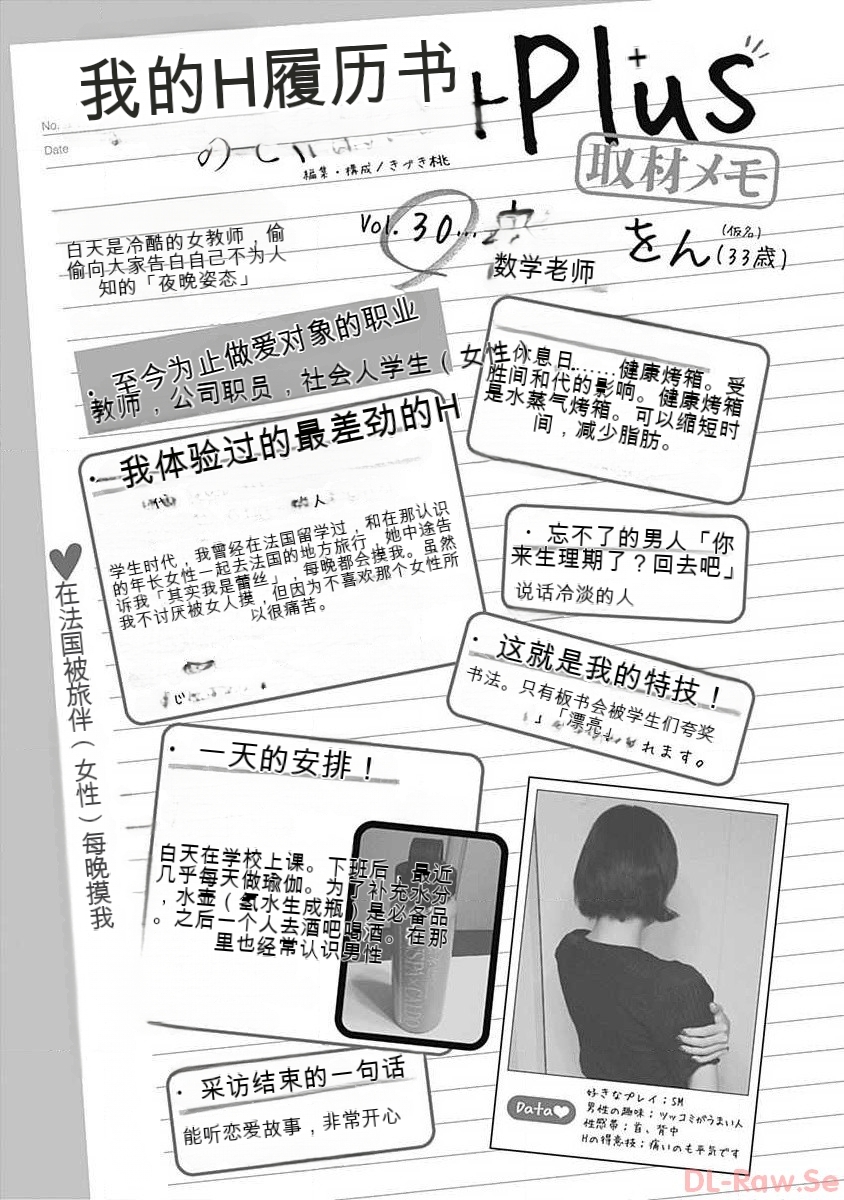 我的H履历书
Plus
No.
Date
編集・構成/きづき桃
取材メモ
Vol. 30...
をん(仮名)(33歳)
数学老师
白天是冷酷的女教师，偷
偷向大家告自自己不为人
知的「夜晚姿态」
・至今为止做爱对象的职业
教师，公司职员，社会人学生（女性）
休息日……健康烤箱。受
胜间和代的影响。健康烤箱
是水蒸气烤箱。可以缩短时
间，减少脂肪。
・我体验过的最差劲的H
学生时代，我曾经在法国留学过，和在那认识
的年长女性一起去法国的地方旅行，她中途告
诉我「其实我是蕾丝」，每晚都会摸我。虽然
我不讨厌被女人摸，但因为不喜欢那个女性所
以很痛苦。
・忘不了的男人「你
来生理期了？回去吧」
说话冷淡的人
♥在法国被旅伴（女性）每晚摸我
・这就是我的特技！
书法。只有板书会被学生们夸奖
」「漂亮」
れます。
・一天的安排！
白天在学校上课。下班后，最近
几乎每天做瑜伽。为了补充水分
，水壶（氢水生成瓶）是必备品
。之后一个人去酒吧喝酒。在那
里也经常认识男性
・采访结束的一句话
能听恋爱故事，非常开心
Data♥
好きなプレイ；SM
男性の趣味；ツッコミがうまい人
性感帯；首、背中
Hの得意技；痛いのも平気です
DL-Raw.Se